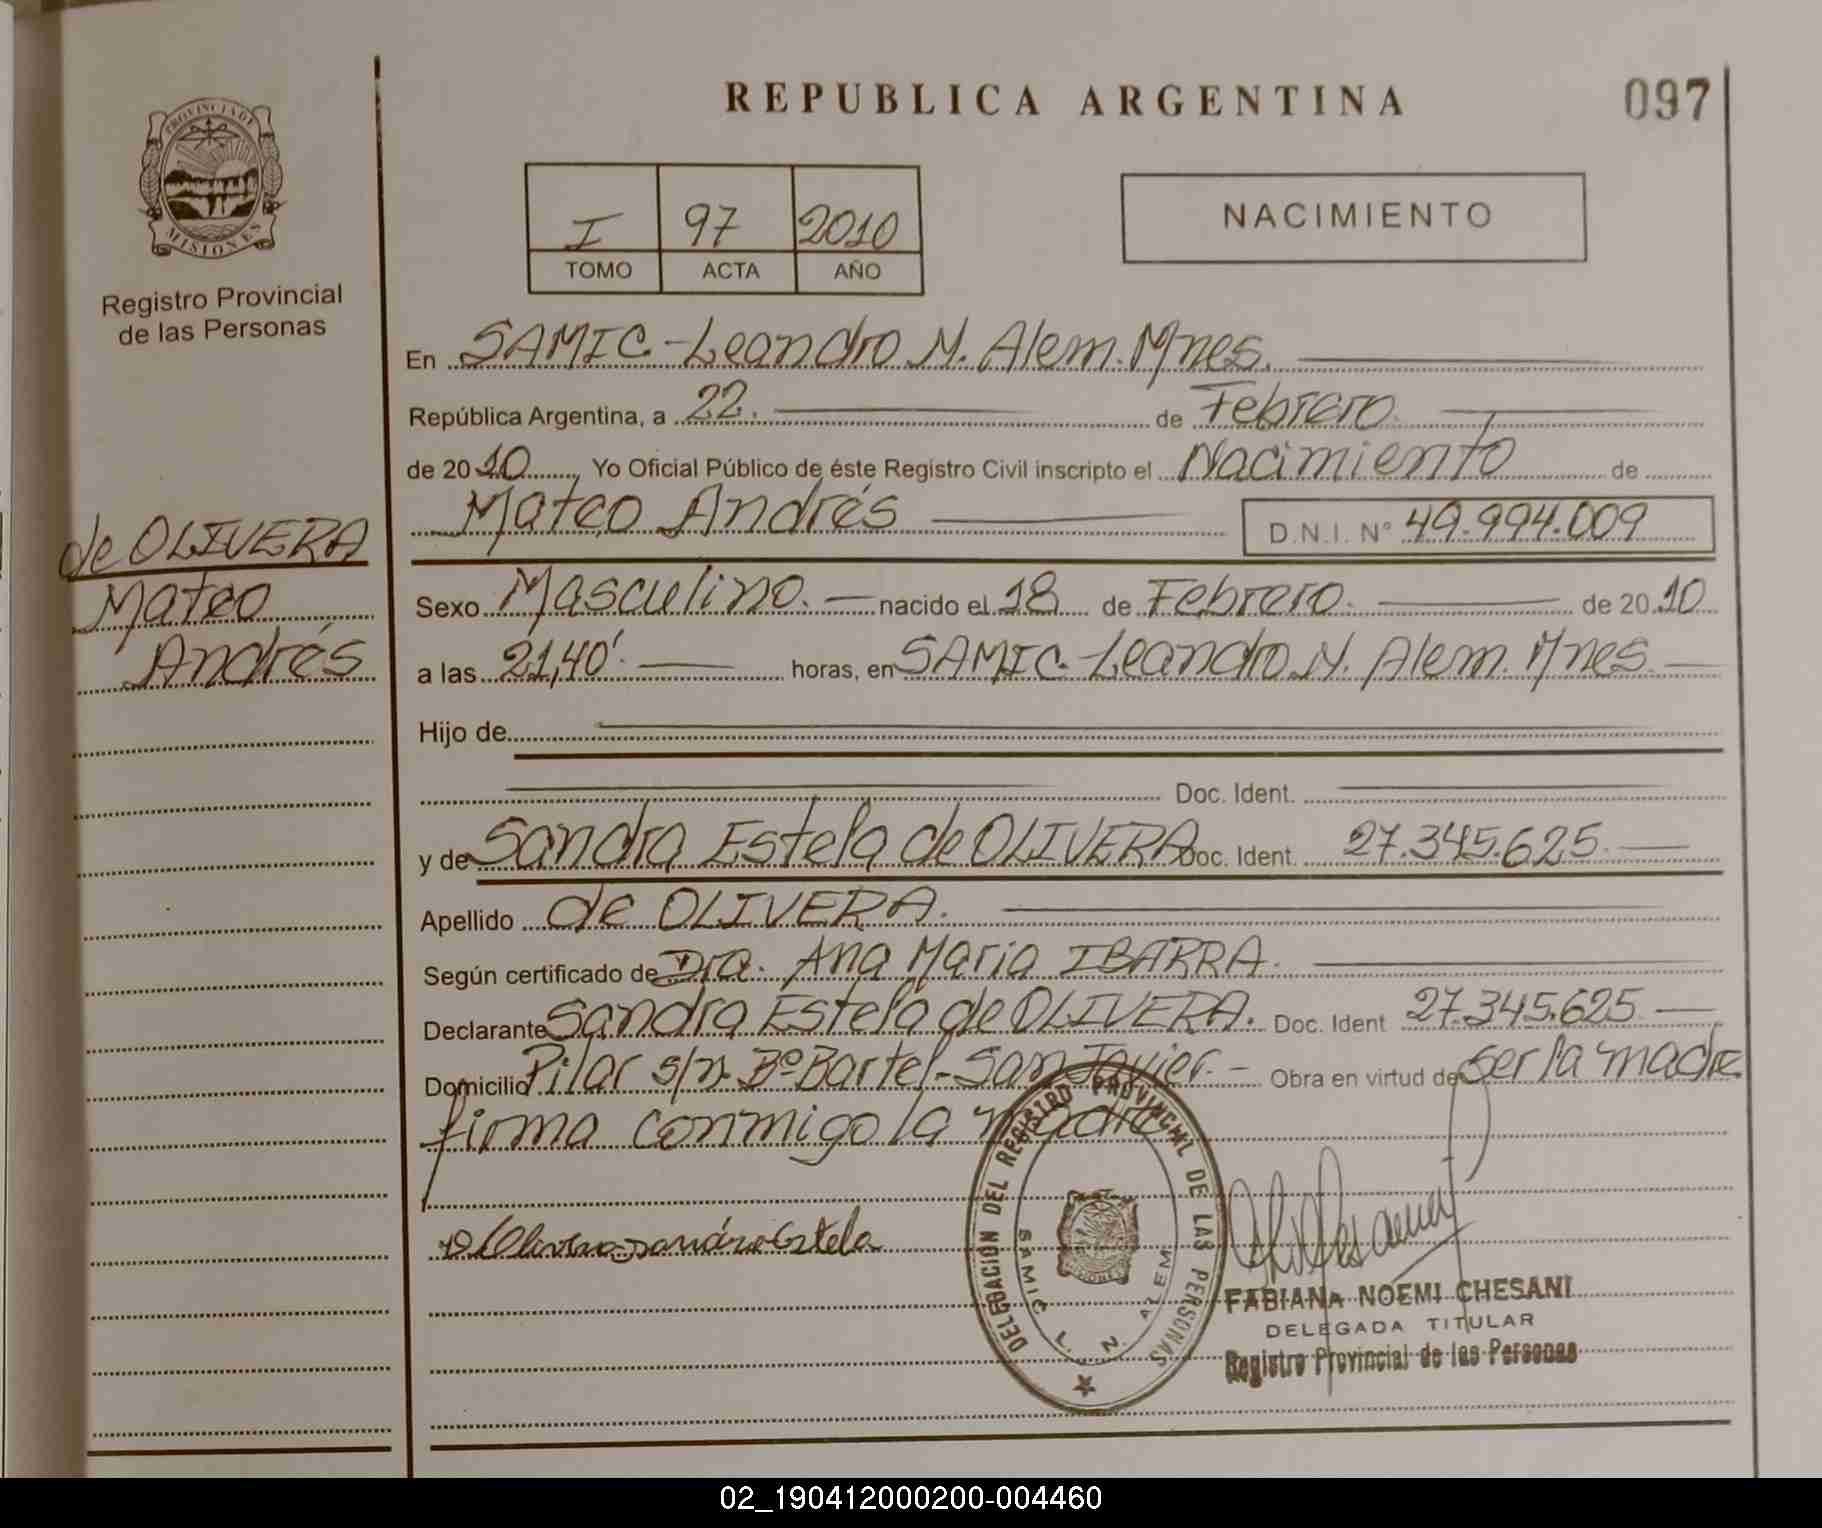 REPUBLICA ARGENTINA
097
PROVINCIA DE
MISIONES
Registro Provincial
de las Personas
I 97 2010
TOMO ACTA AÑO
NACIMIENTO
En SAMIC - Leandro N. Alem. Mnes.
República Argentina, a 22. de Febrero.
de 2010 Yo Oficial Público de éste Registro Civil inscripto el Nacimiento de
Mateo Andrés D.N.I. N° 49.994.009
de OLIVERA
Mateo
Andrés
Sexo Masculino. nacido el 18 de Febrero. de 2010
a las 21,40'. horas, en SAMIC - Leandro N. Alem. Mnes.
Hijo de
Doc. Ident.
y de Sandra Estela de OLIVERA Doc. Ident. 27.345.625.
Apellido de OLIVERA.
Según certificado de Dra. Ana Maria IBARRA.
Declarante Sandra Estela de OLIVERA. Doc. Ident 27.345.625
Domicilio Pilar s/n. B° Bartel - San Javier. - Obra en virtud de ser la madre
firma conmigo la madre
D Olivera Sandra Estela
DELEGACIÓN DEL REGISTRO PROVINCIAL DE LAS PERSONAS
SAMIC L. N. ALEM
FABIANA NOEMI CHESANI
DELEGADA TITULAR
Registro Provincial de las Personas
02_190412000200-004460